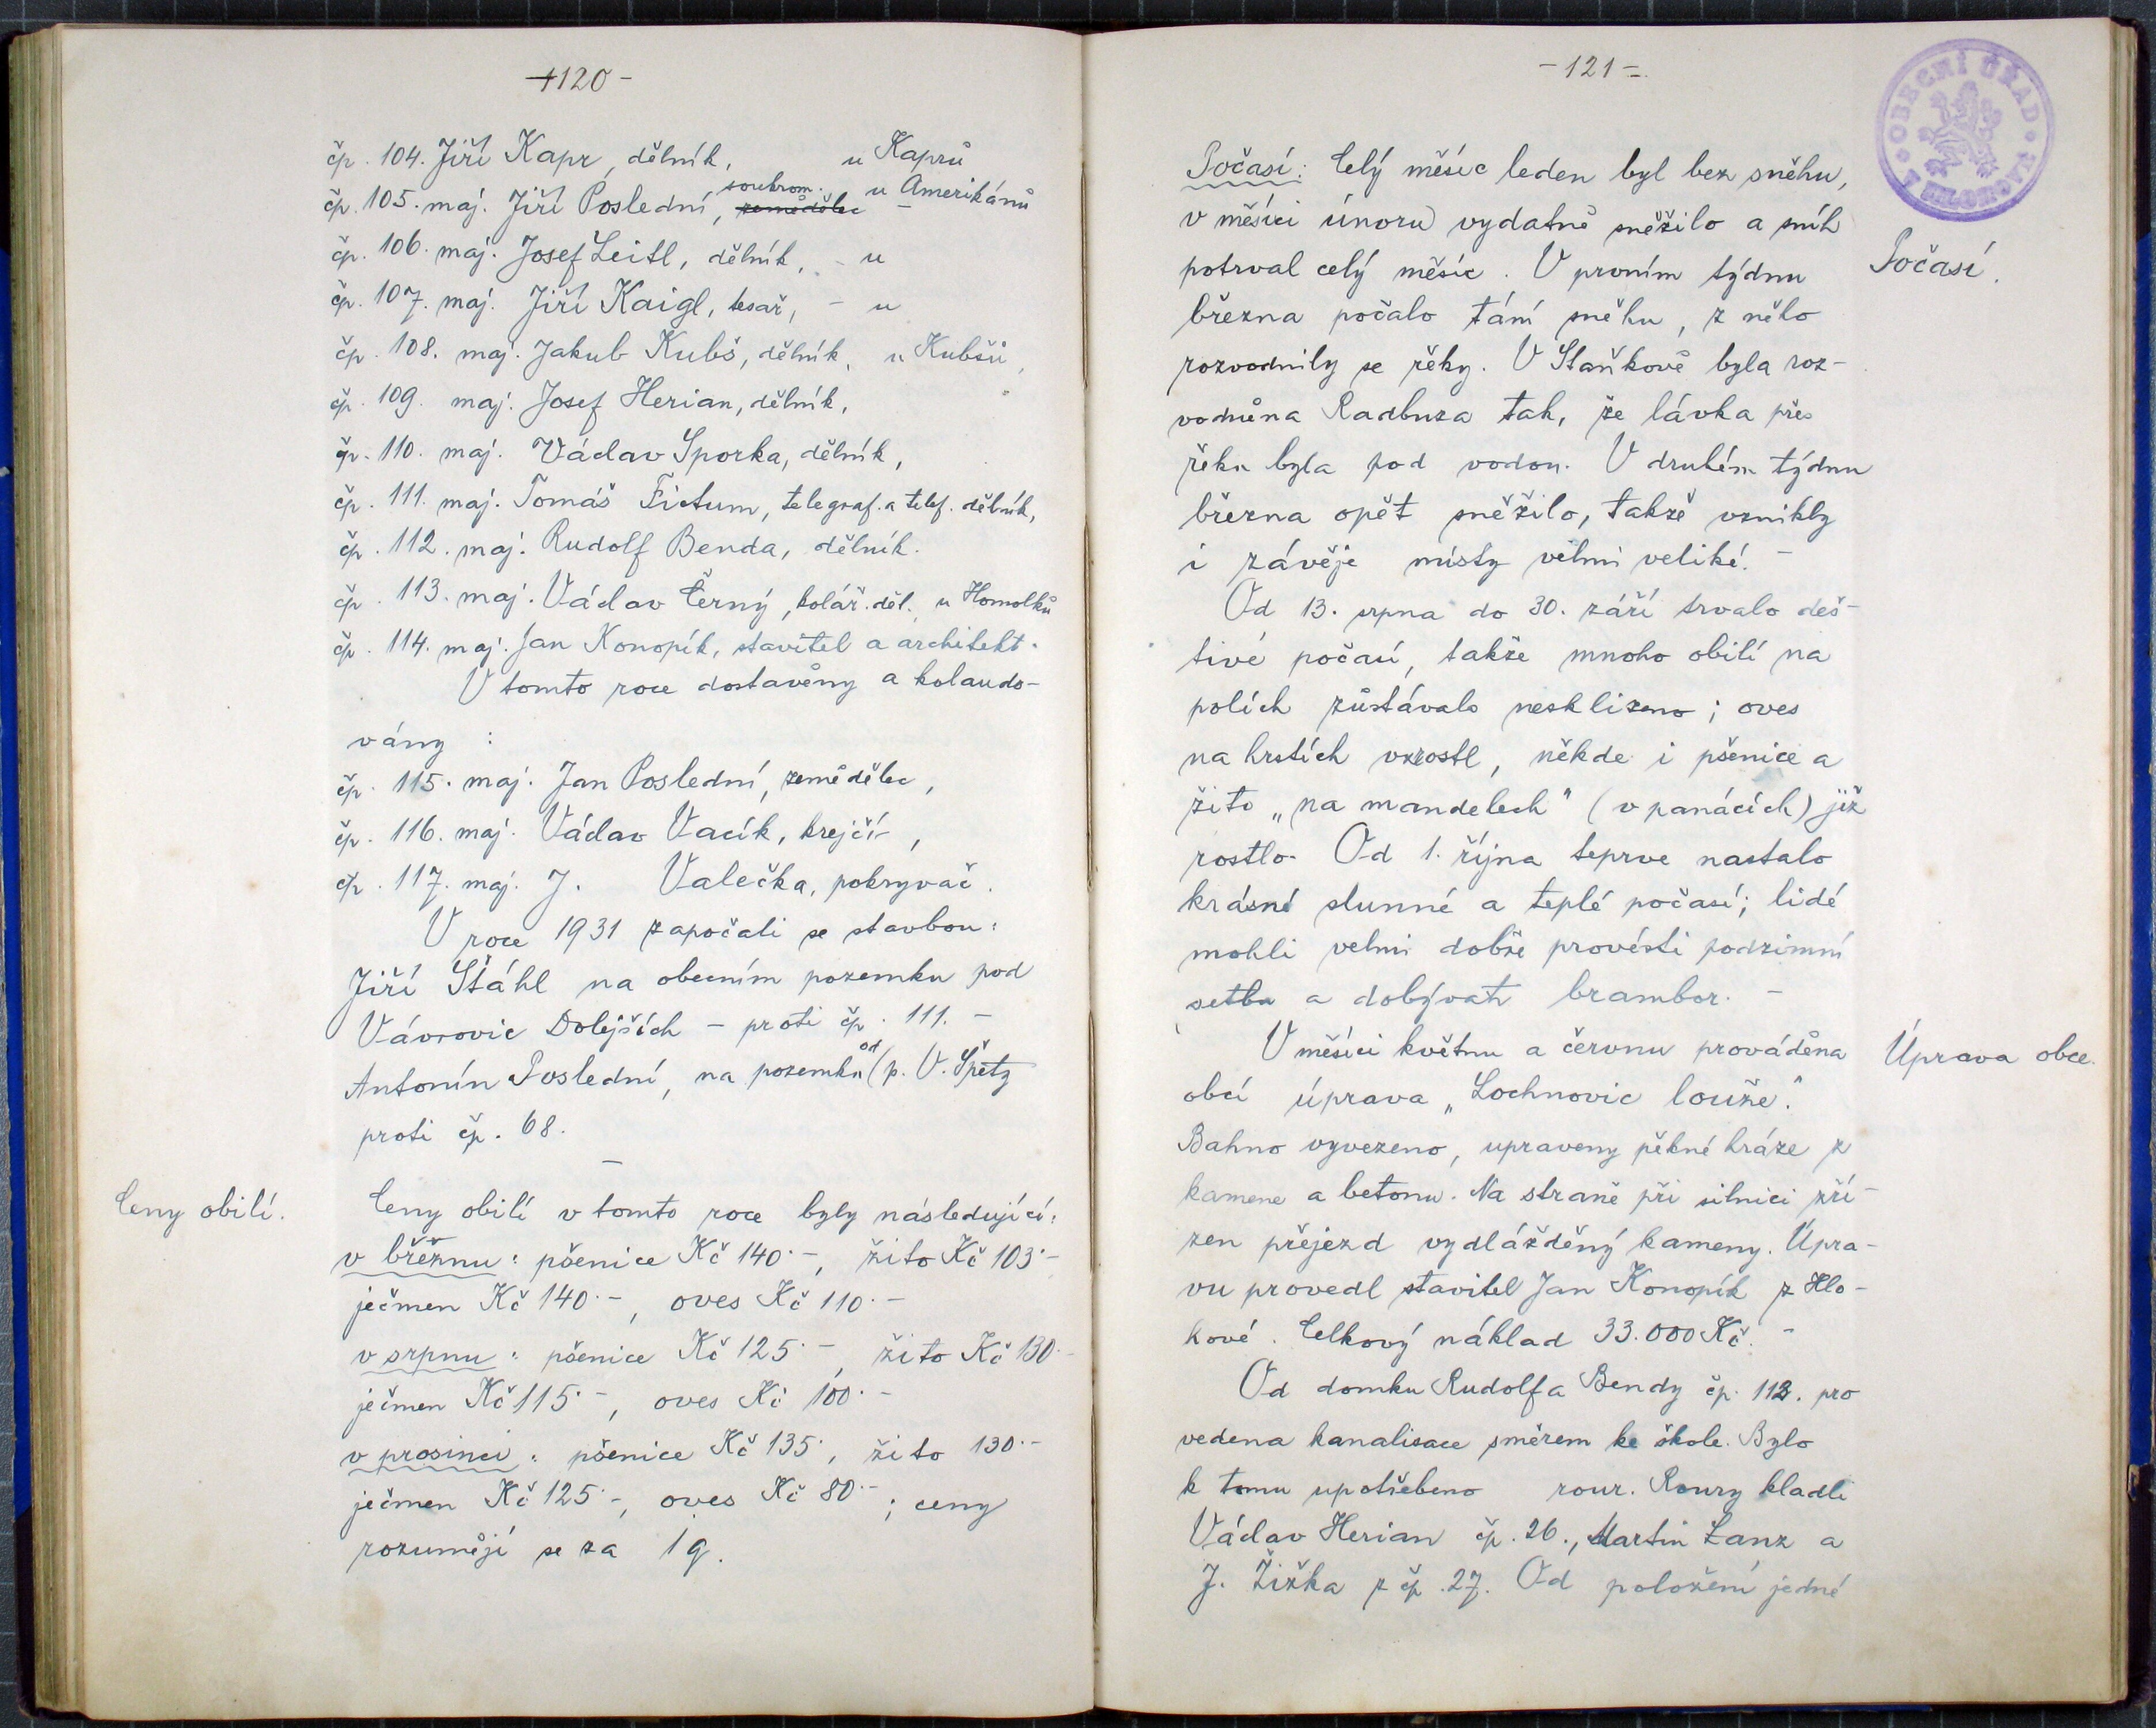 120 -
čp. 104. Jiří Kapr, dělník, u Kaprů
čp. 105. maj. Jiří Poslední, zemědělec soukrom. u Amerikánů
čp. 106. maj. Josef Leitl, dělník, - u
čp. 107. maj. Jiří Kaigl, tesař, - u
čp. 108. maj. Jakub Kubš, dělník, u Kubšů,
čp. 109. maj. Josef Herian, dělník,
čp. 110. maj. Václav Sporka, dělník,
čp. 111. maj. Tomáš Fictum, telegraf. a telef. dělník,
čp. 112. maj. Rudolf Benda, dělník.
čp. 113. maj. Václav Černý, kolář. děl. u Homolků
čp. 114. maj. Jan Konopík, stavitel a architekt.
V tomto roce dostavěny a kolaudo-
vány :
čp. 115. maj. Jan Poslední, zemědělec,
čp. 116. maj. Václav Vacík, krejčí,
čp. 117. maj. J. Valečka, pokryvač.
V roce 1931 započali se stavbou:
Jiří Stáhl na obecním pozemku pod
Vávrovic Dolejších - proti čp. 111. -
Antonín Poslední, na pozemku (od p. V. Špéty
proti čp. 68.
Ceny obilí.
Ceny obilí v tomto roce byly následující:
v březnu: pšenice Kč 140·-, žito Kč 103·-
ječmen Kč 140·-, oves Kč 110·-
v srpnu: pšenice Kč 125·-, žito Kč 130·-
ječmen Kč 115·-, oves Kč 100·-
v prosinci: pšenice Kč 135·, žito 130·-
ječmen Kč 125·-, oves Kč 80·-; ceny
rozumějí se za 1 q.
- 121 -
OBECNÍ ÚŘAD
Počasí: Celý měsíc leden byl bez sněhu,
v měsíci únoru vydatně sněžilo a sníh
potrval celý měsíc. V prvním týdnu
Počasí.
března počalo tání sněhu, z něho
rozvodnily se řeky. V Staňkově byla roz-
vodněna Radbuza tak, že lávka přes
řeku byla pod vodou. V druhém týdnu
března opět sněžilo, takže vznikly
i závěje místy velmi veliké. -
Od 13. srpna do 30. září trvalo deš-
tivé počasí, takže mnoho obilí na
polích zůstávalo nesklizeno; oves
na hrstích vzrostl, někde i pšenice a
žito „na mandelech" (v panácích) již
rostlo. Od 1. října teprve nastalo
krásné slunné a teplé počasí; lidé
mohli velmi dobře provésti podzimní
setbu a dobývati brambor. -
V měsíci květnu a červnu prováděna
Úprava obce.
obcí úprava „Lochnovic louže".
Bahno vyvezeno, upraveny pěkné hráze z
kamene a betonu. Na straně při silnici zří-
zen přejezd vydlážděný kameny. Úpra-
vu provedl stavitel Jan Konopík z Hlo-
hové. Celkový náklad 33.000 Kč. -
Od domku Rudolfa Bendy čp. 112. pro
vedena kanalisace směrem ke škole. Bylo
k tomu upotřebeno rour. Roury kladli
Václav Herian čp. 26., Martin Lanz a
J. Žižka z čp. 27. Od položení jedné